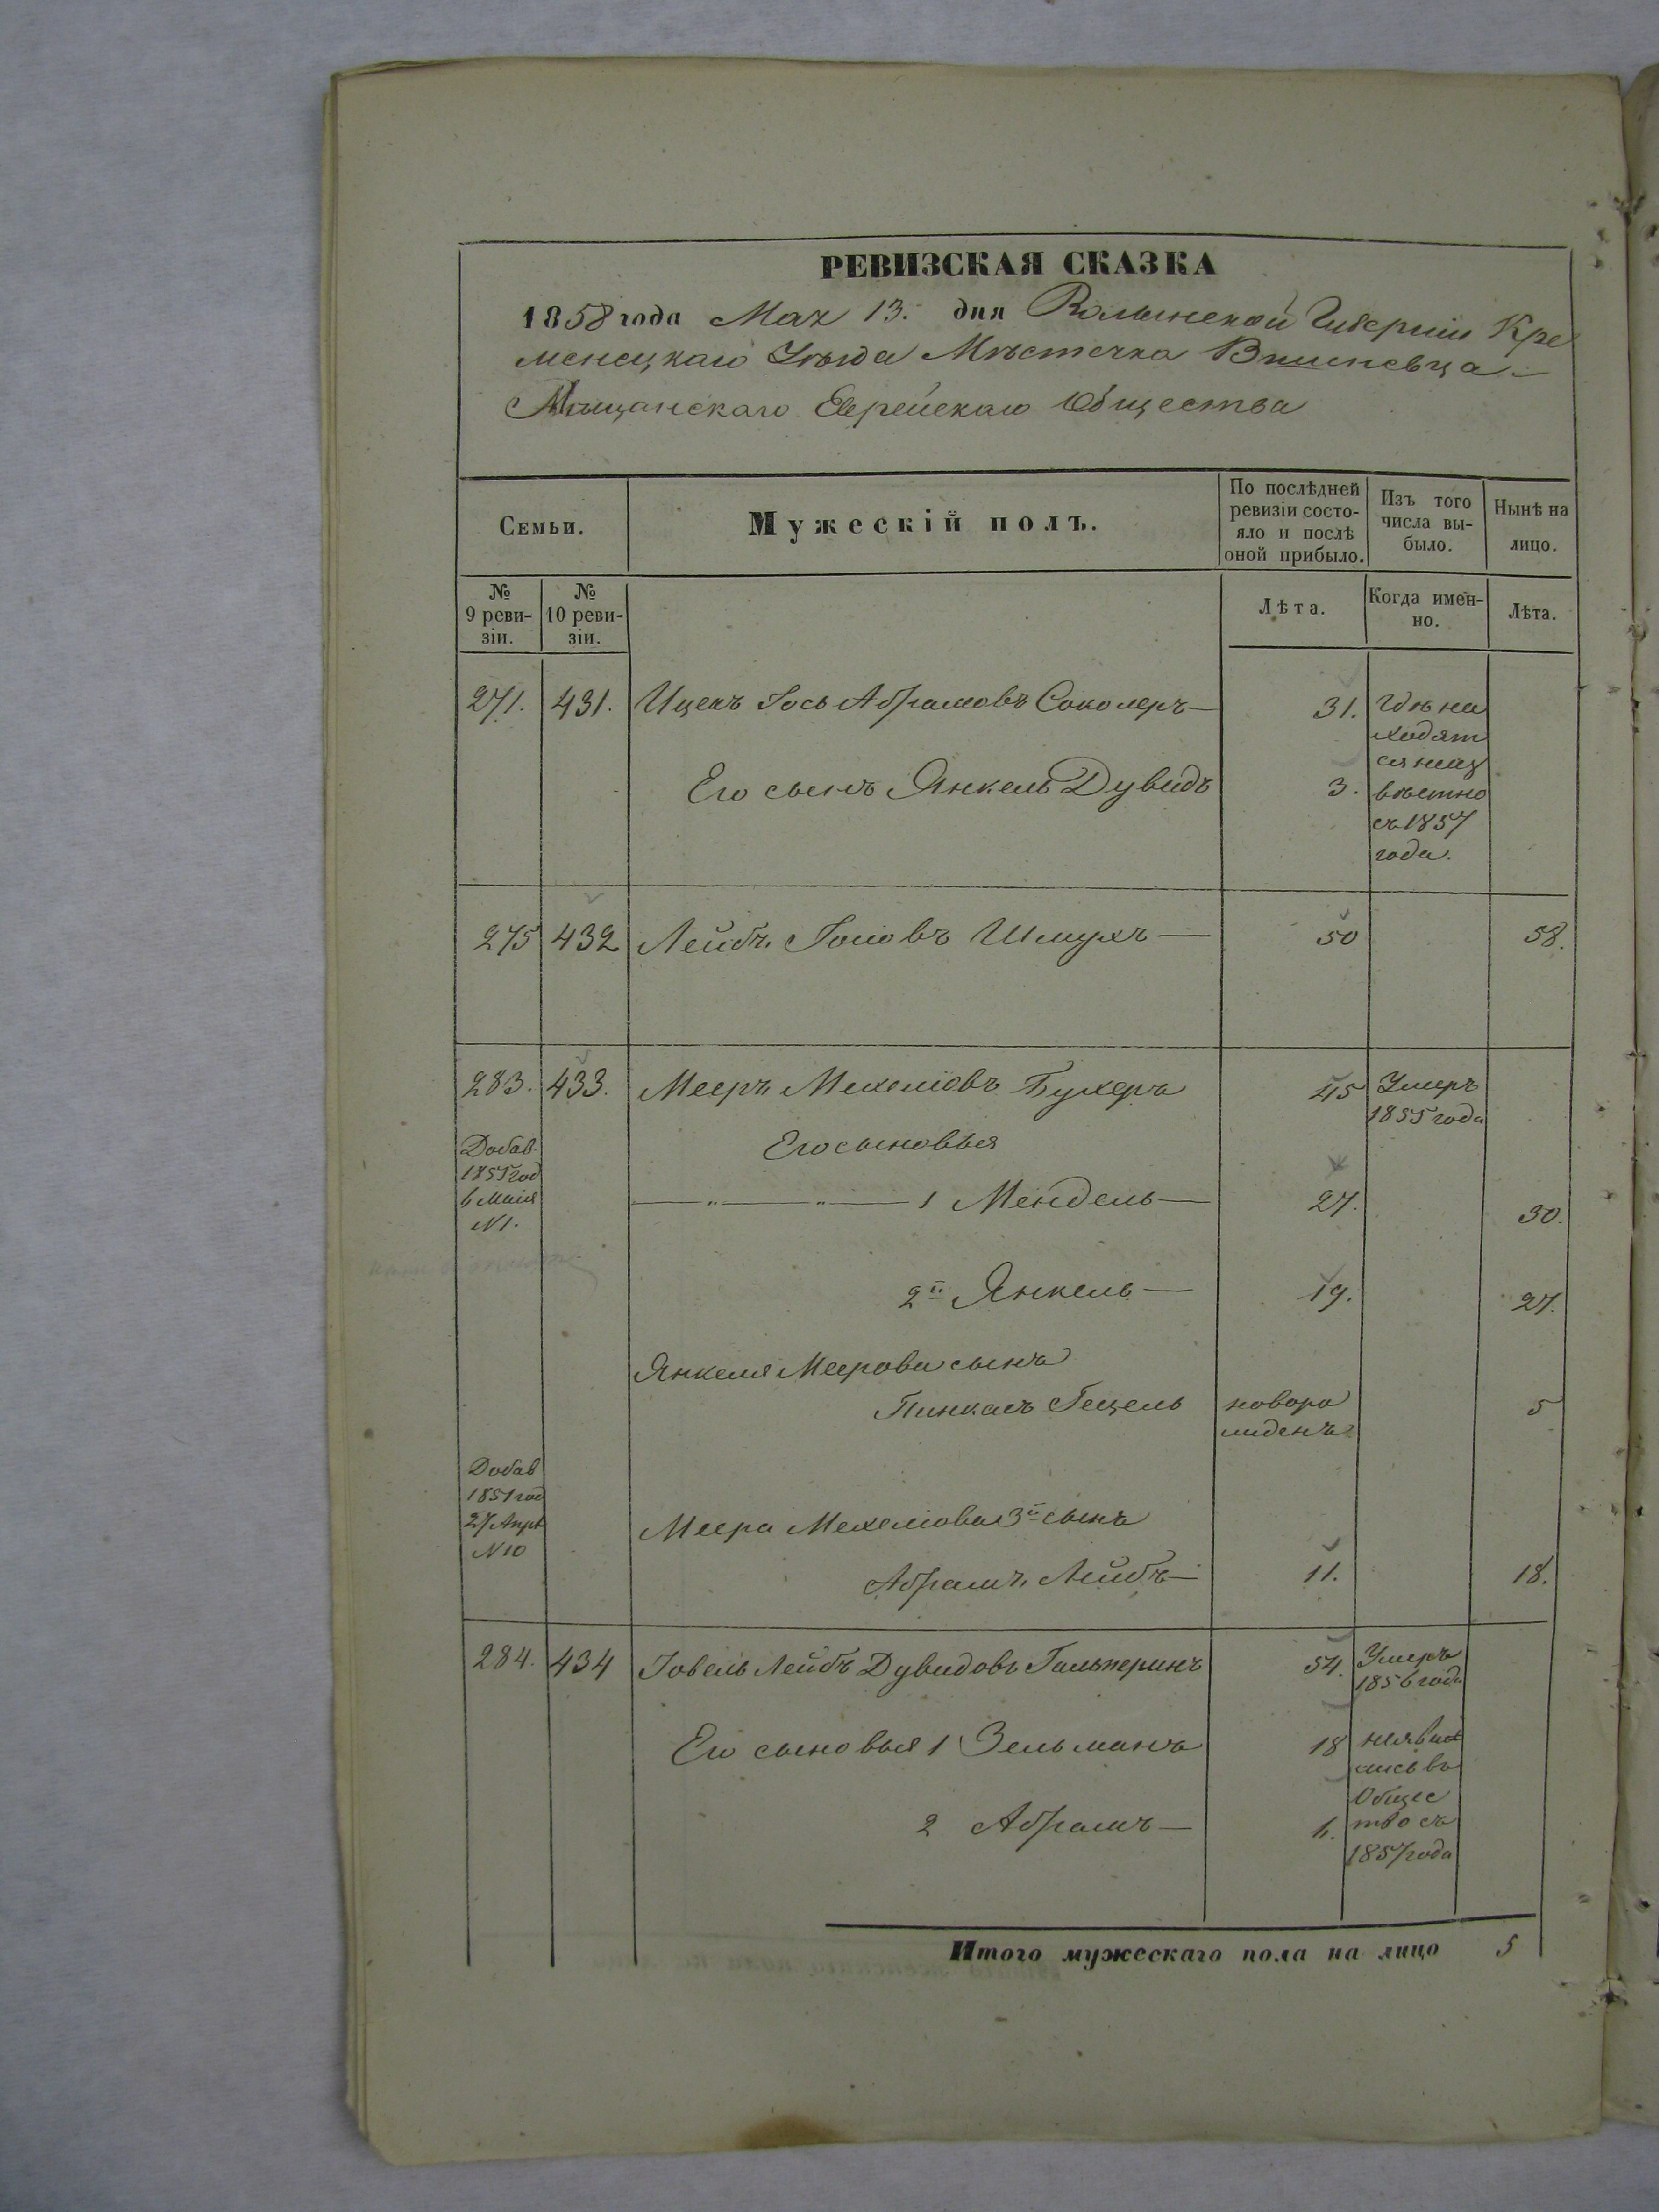 РЕВИЗСКАЯ СКАЗКА
1858 года Мая 13. дня Волынской Губерніи Кре
менецкаго Уѣзда Мѣстечка Вишневца
Мѣщанскаго Еврейскаго Общества
Семьи.
Мужескій полъ.
По послѣдней ревизіи состо-
яло и послѣ
оной прибыло.
Изъ того
числа вы-
было.
Нынѣ на
лицо.
№
9 реви-
зіи.
№
10 реви-
зіи.
Лѣта.
Когда имен-
но.
Лѣта.
271. 431. Ицекъ Іось Абрамовъ Соколеръ 31. Гдѣ на
ходят
ся неиз
Его сынъ Янкель Дувидъ 3. вѣстно
съ 1857
года.
275 432 Лейбъ Іосіовъ Шмухъ 50 58.
283. 433. Мееръ Мехеліовъ Бухеръ 45 Умеръ
1855 года
Добав.
1851 год
6 Маія
N 1.
Его сыновья
1 Мендель 27. 30.
2й Янкель 19. 27.
Янкеля Меерова сынъ
Пинкасъ Гецель новоро 5
жденъ
Добав
1851 год
27 Апрѣ
N 10
Меера Мехеліова 3й сынъ
Абрамъ Лейбъ 11. 18.
284. 434 Іовель Лейбъ Дувидовъ Гальперинъ 54. Умеръ
1856 года
Его сыновья 1 Зельманъ 18 неявив
шись въ
Общес
2 Абрамъ 1. тво съ
1857 года
Итого мужескаго пола на лицо 5